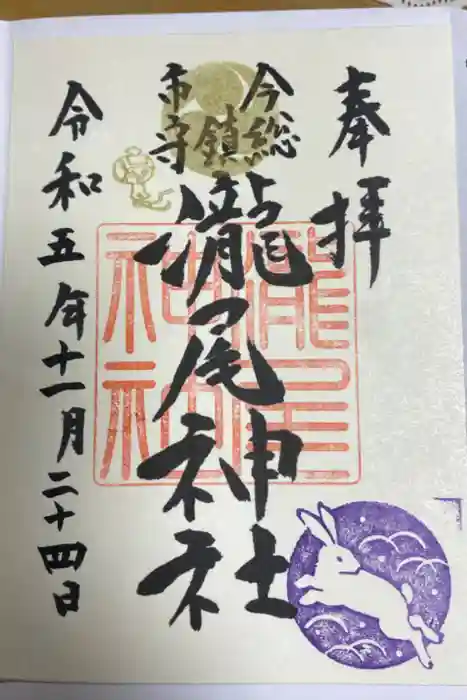 奉拝
今市
総鎮守
瀧尾神社
瀧尾神社
令和五年十一月二十四日